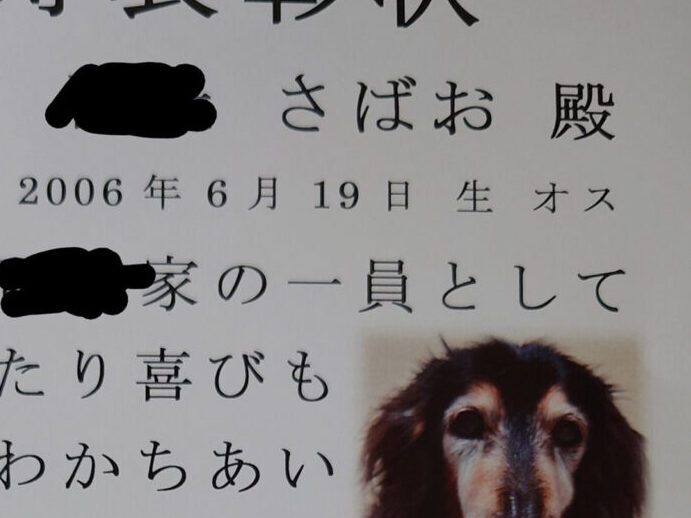 表彰状
さばお 殿
2006年6月19日 生 オス
家の一員として
たり喜びも
わかちあい